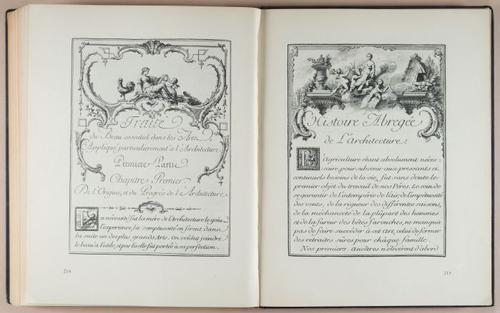 Traité
du Beau essentiel dans les Arts
Appliqué particulierement à l'Architecture
Premiere Partie
Chapitre Premier
De l'Origine, et du Progrès de l'Architecture
La nécessité fut la mere de l'Architecture le génie
l'experience, sa somptuosité en firent dans
la suite un des plus grands Arts. on voulut joindre
le beau à l'utile, et par là elle fut portée à sa perfection.
214
Histoire Abregée
de L'Architecture
L'Agriculture étant absolument néces-
saire, pour subvenir aux pressants et
continuels besoins de la vie, fut sans doute le
premier objet du travail de nos Péres. Le soin de
se garantir de l'intempérie de l'air, de l'impétuosité
des vents, de la rigueur des differentes saisons,
de la méchanceté de la plûpart des hommes
et de la fureur des bêtes farouches, ne manqua
pas de faire succéder à cet Art, celui de former
des retraites sûres pour chaque famille.
Nos premiers Ancêtres n'élevérent d'abord
215